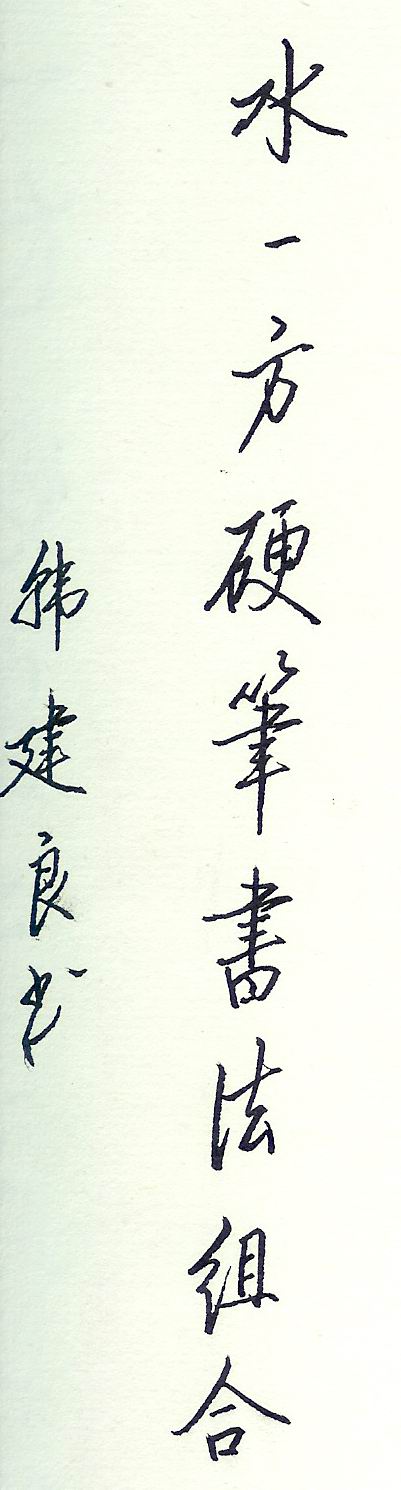 水一方硬筆書法组合
韩建良书